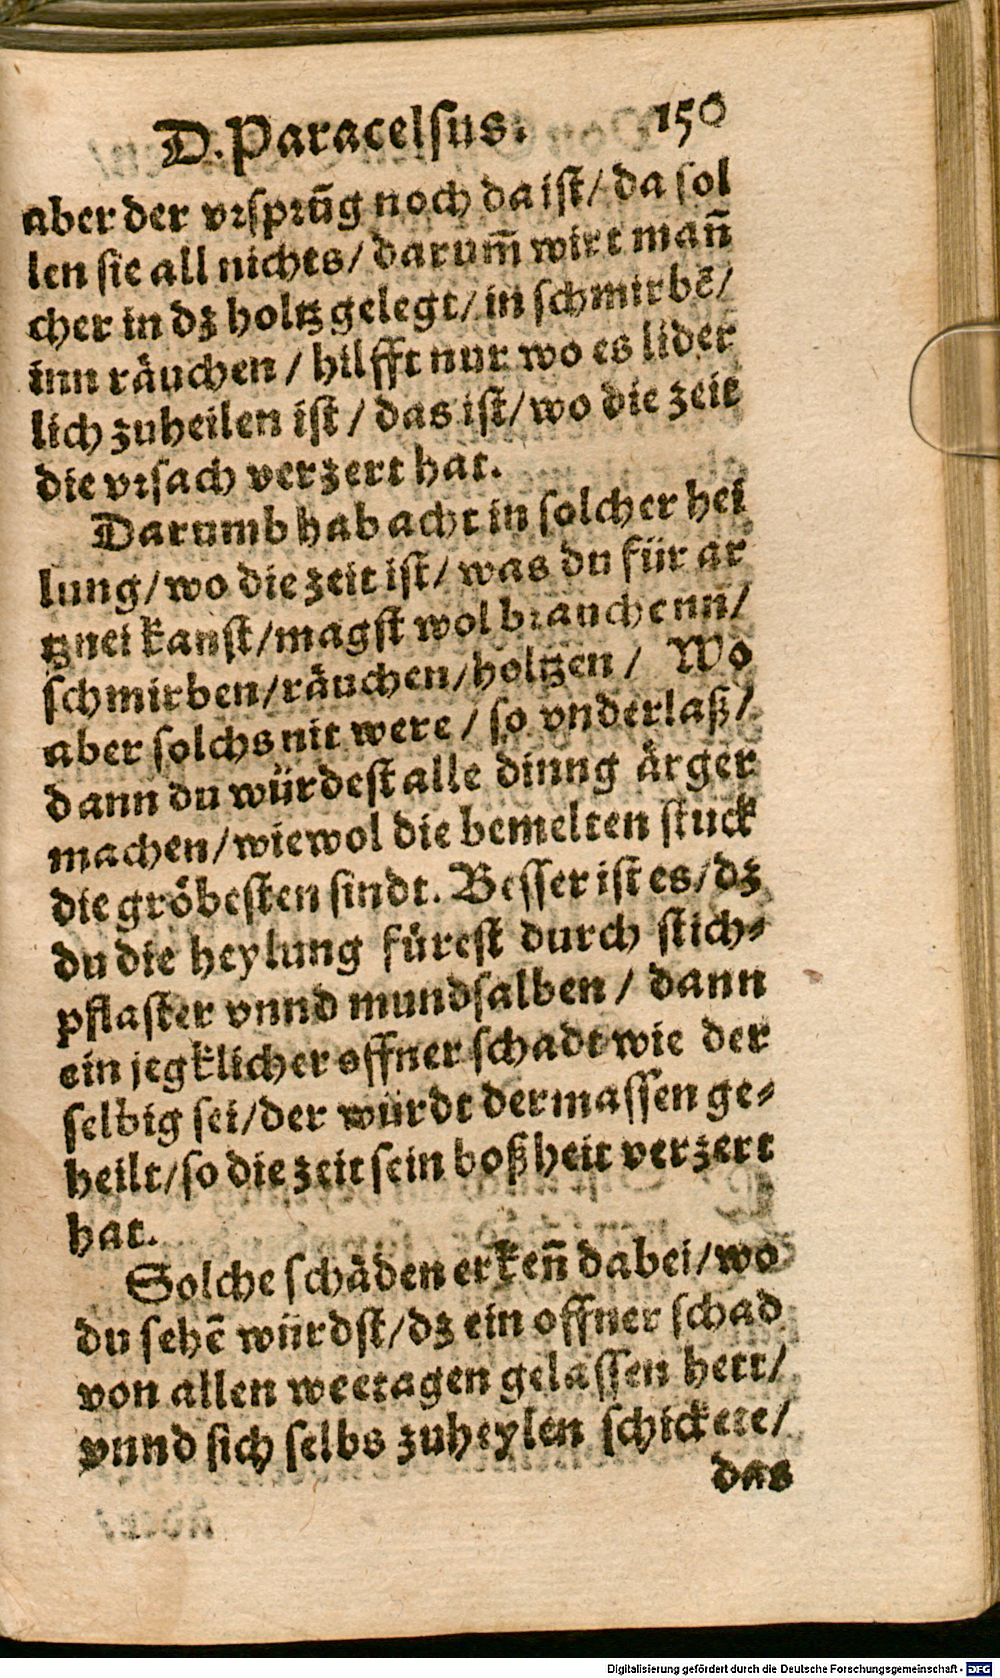 D. Paracelsus. 150
aber der vrsprũg noch da ist/ da sol
len sie all nichts/ darum̃ wirt mañ
cher in dz holtz gelegt/ in schmirbẽ/
inn räuchen / hilfft nur wo es lider
lich zuheilen ist / das ist/ wo die zeit
die vrsach verzert hat.
Darumb hab acht in solcher hei
lung/ wo die zeit ist/ was du für ar
tznei kanst/magst wol brauchenn/
schmirben/räuchen/holtzen / Wo
aber solchs nit were / so vnderlaß/
dann du würdest alle dinng ärger
machen/ wiewol die bemelten stuck
die gröbesten sindt. Besser ist es/ dz
du die heylung fürest durch stich-
pflaster vnnd mundsalben / dann
ein jegklicher offner schadt wie der
selbig sei/der würdt dermassen ge-
heilt/so die zeit sein boßheit verzert
hat.
Solche schäden erkeñ dabei/ wo
du sehẽ würdst/dz ein offner schad
von allen weetagen gelassen hett/
vnnd sich selbs zuheylen schickete/
das
Digitalisierung gefördert durch die Deutsche Forschungsgemeinschaft - DFG